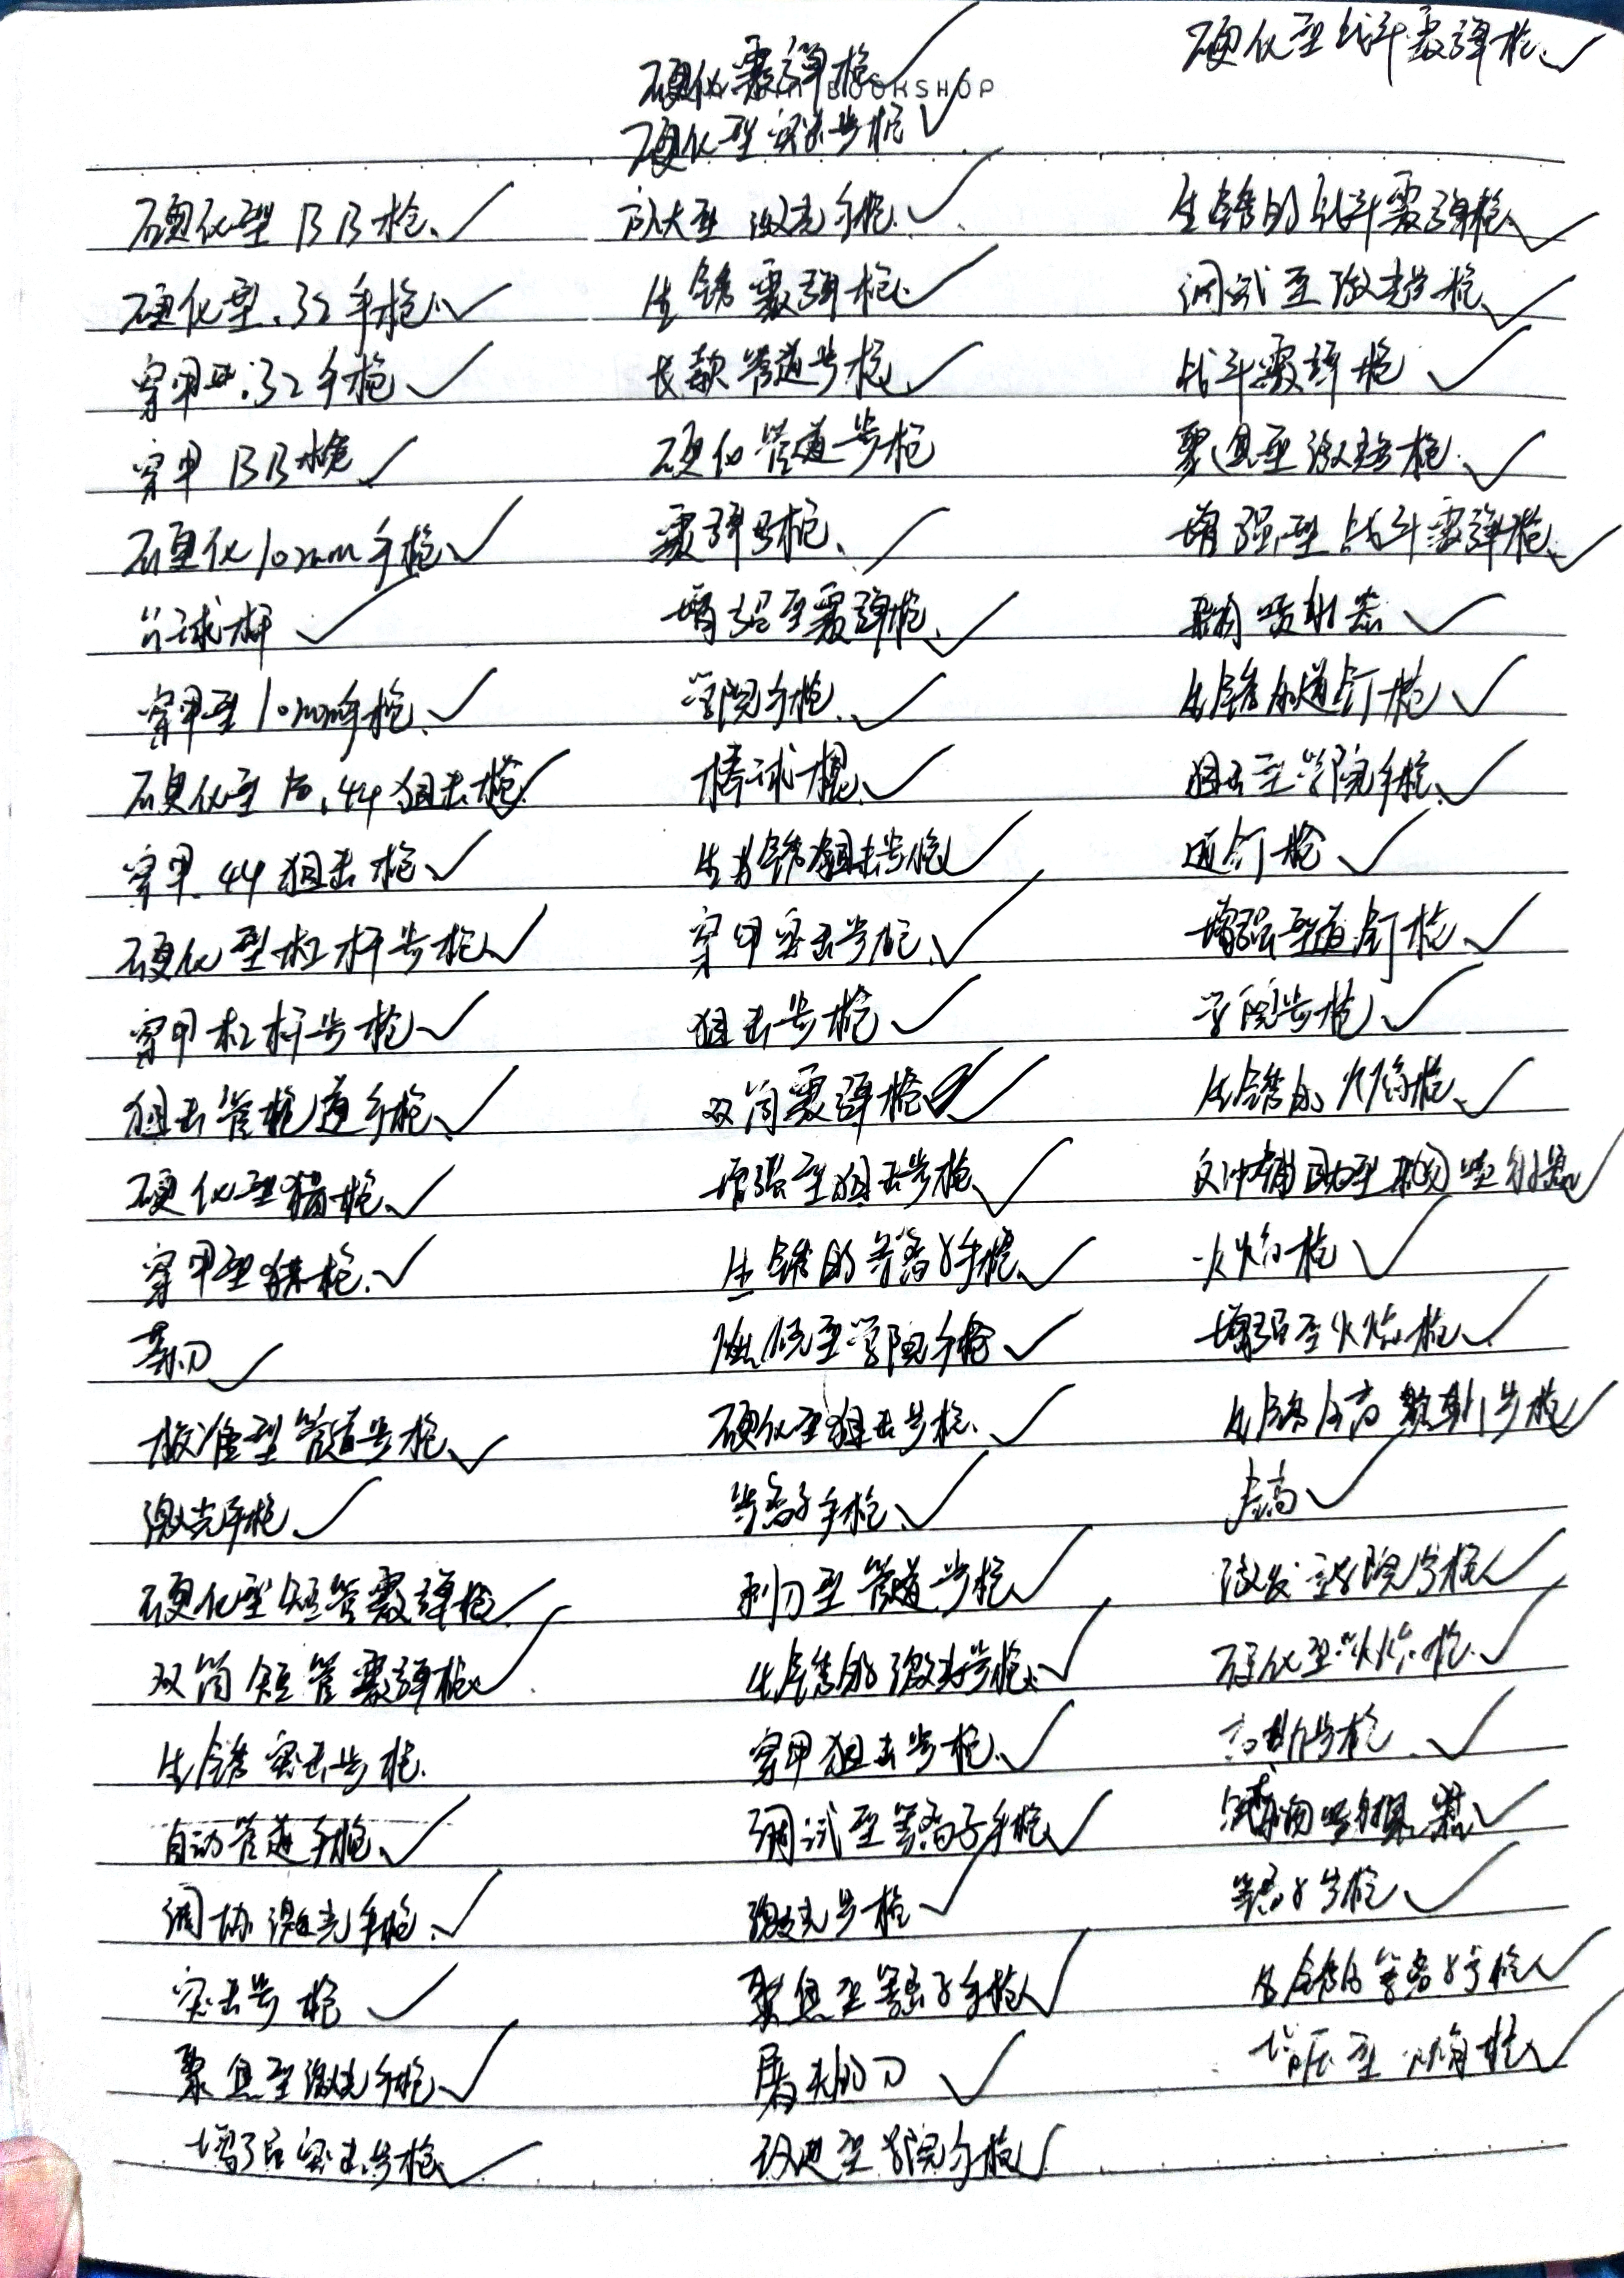 硬化型BB枪
硬化型.32手枪
穿甲型.32手枪
穿甲BB枪
硬化10mm手枪
台球杆
穿甲型10mm手枪
硬化型 .44狙击枪
穿甲.44狙击枪
硬化型杠杆步枪
穿甲杠杆步枪
狙击管道手枪
硬化型猎枪
穿甲型猎枪
菜刀
校准型管道步枪
激光手枪
硬化型短管霰弹枪
双筒短管霰弹枪
生锈突击步枪
自动管道手枪
调协激光手枪
突击步枪
聚焦型激光手枪
增强突击步枪
硬化霰弹枪
BOOKSHOP
硬化型突击步枪
放大型激光手枪
生锈霰弹枪
长款管道步枪
硬化管道步枪
霰弹枪
增强型霰弹枪
学院手枪
棒球棍
生锈狙击步枪
穿甲突击步枪
狙击步枪
双筒霰弹枪
增强型狙击步枪
生锈的等离子手枪
型学院手枪
硬化型狙击步枪
等离子手枪
刺刀型管道步枪
生锈的激光步枪
穿甲狙击步枪
调试型等离子手枪
激光步枪
聚焦型等离子手枪
屠夫的刀
改进型学院步枪
硬化型战斗霰弹枪
生锈的战斗霰弹枪
调试型激光步枪
战斗霰弹枪
聚焦型激光步枪
增强型战斗霰弹枪
杂物喷射器
生锈的道钉枪
狙击型学院手枪
道钉枪
增强型道钉枪
学院步枪
生锈的火焰枪
反冲辅助型杂物喷射器
火焰枪
增强型火焰枪
生锈高斯步枪
激发型学院步枪
硬化型火焰枪
高斯步枪
杂物喷射器
等离子步枪
生锈的等离子步枪
增压型火焰枪